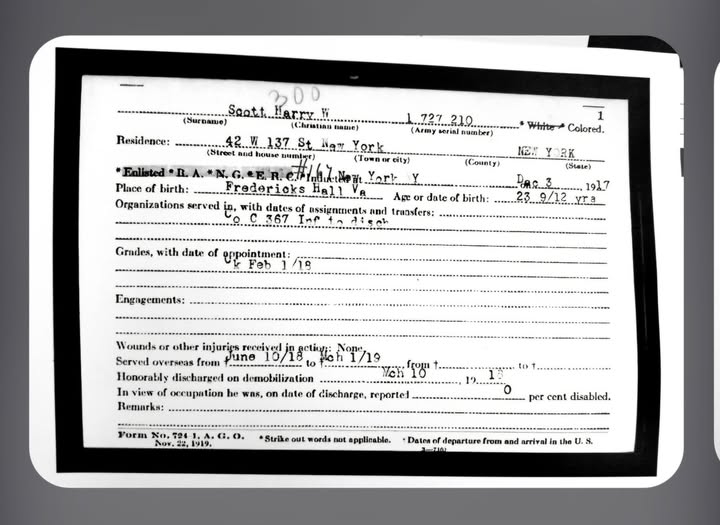 300
Scott Harry W 1 727 210 * White * Colored. 1
(Surname) (Christian name) (Army serial number)
Residence: 42 W 137 St New York NEW YORK
(Street and house number) (Town or city) (County) (State)
*Enlisted *R. A. *N. G. *E. R. C. *Inducted at #167 New York Y Dec 3, 1917
Place of birth: Fredericks Hall Va Age or date of birth: 23 9/12 yrs
Organizations served in, with dates of assignments and transfers:
Co C 367 Inf to disch
Grades, with date of appointment:
Ck Feb 1/18
Engagements:
Wounds or other injuries received in action: None.
Served overseas from † June 10/18 to † Mch 1/19 from † to †
Honorably discharged on demobilization Mch 10, 19
In view of occupation he was, on date of discharge, reported 0 per cent disabled.
Remarks:
Form No. 724-1, A. G. O. *Strike out words not applicable. † Dates of departure from and arrival in the U. S.
Nov. 22, 1919. 3—7107